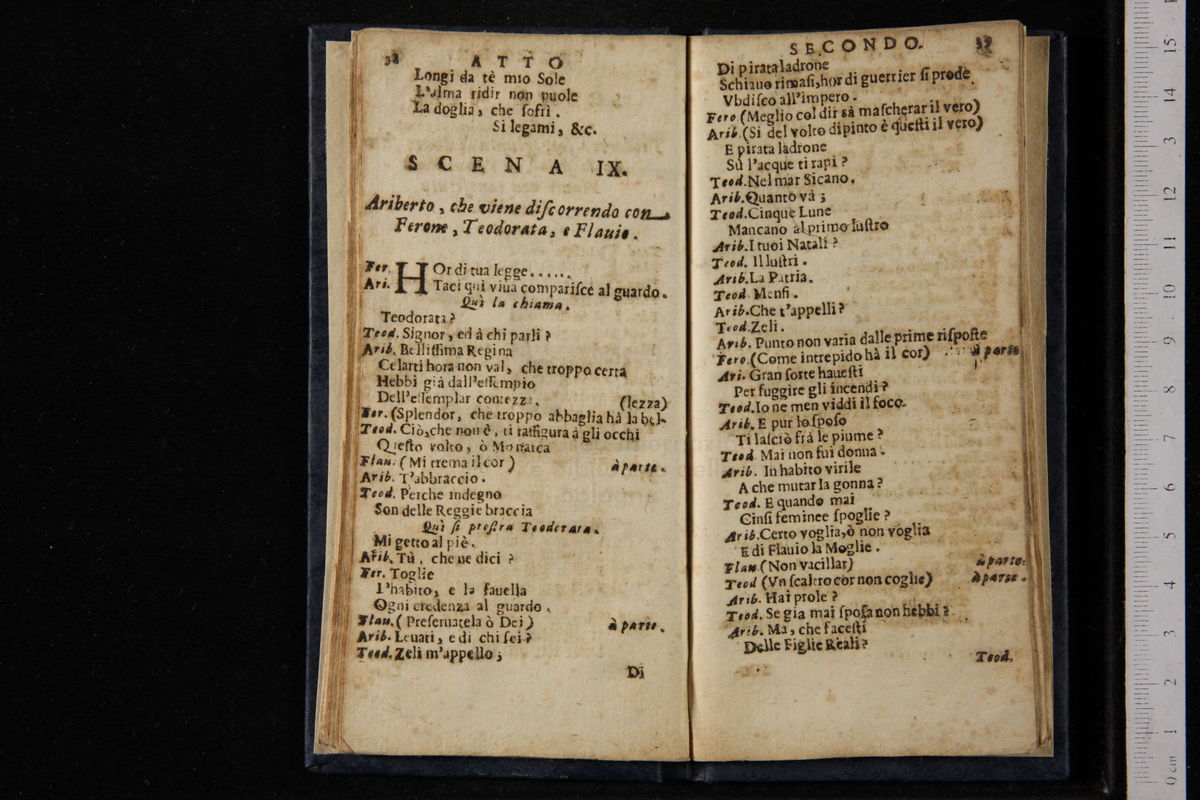 38
ATTO
Longi da tè mio Sole
L'alma ridir non puole
La doglia, che ſofrì.
Si legami, &c.
SCENA IX.
Ariberto, che viene diſcorrendo con
Ferone, Teodorata, e Flauio.
Fer. HOr di tua legge......
Ari. Taci quì viua comparifce al guardo.
Quì la chiama.
Teodorata?
Teod. Signor, ed à chi parli?
Arib. Belliſſima Regina
Celarti hora non val, che troppo certa
Hebbi già dall'eſſempio
Dell'eſſemplar contezza. (lezza)
Fer. (Splendor, che troppo abbaglia hà la bel-
Teod. Ciò, che non è, ti raffigura à gli occhi
Queſto volto, ò Monarca
Flau. (Mi trema il cor) à parte.
Arib. T'abbraccio.
Teod. Perche indegno
Son delle Reggie braccia
Quì ſi proſtra Teodorata.
Mi getto al piè.
Arib. Tù, che ne dici?
Fer. Toglie
l'habito, e la fauella
Ogni credenza al guardo.
Flau. (Preſeruatela ò Dei) à parte.
Arib. Leuati, e di chi ſei?
Teod. Zeli m'appello;
Di
SECONDO. 39
Di pirata ladrone
Schiauo rimaſi, hor di guerrier ſi prodè
Vbdiſco all'impero.
Fero (Meglio col dir sà maſcherar il vero)
Arib. (Si del volto dipinto è queſti il vero)
E pirata ladrone
Sù l'acque ti rapì?
Teod. Nel mar Sicano.
Arib. Quanto và;
Teod. Cinque Lune
Mancano al primo luſtro
Arib. I tuoi Natali?
Teod. Illuſtri.
Arib. La Patria.
Teod. Menfi.
Arib. Che t'appelli?
Teod. Zeli.
Arib. Punto non varia dalle prime riſpoſte
Fero. (Come intrepido hà il cor) à parte
Ari. Gran ſorte haueſti
Per fuggire gli incendi?
Teod. Io ne men viddi il foco.
Arib. E pur lo ſpoſo
Ti laſciò frà le piume?
Teod. Mai non fui donna.
Arib. In habito virile
A che mutar la gonna?
Teod. E quando mai
Cinſi feminee ſpoglie?
Arib. Certo voglia, ò non voglia
E di Flauio la Moglie.
Flau. (Non vacillar) à parte.
Teod (Vn ſcaltro cor non coglie) à parte.
Arib. Hai prole?
Teod. Se gia mai ſpoſa non hebbi?
Arib. Ma, che faceſti
Delle Figlie Reali?
Teod.
0 cm 1 2 3 4 5 6 7 8 9 10 11 12 13 14 15